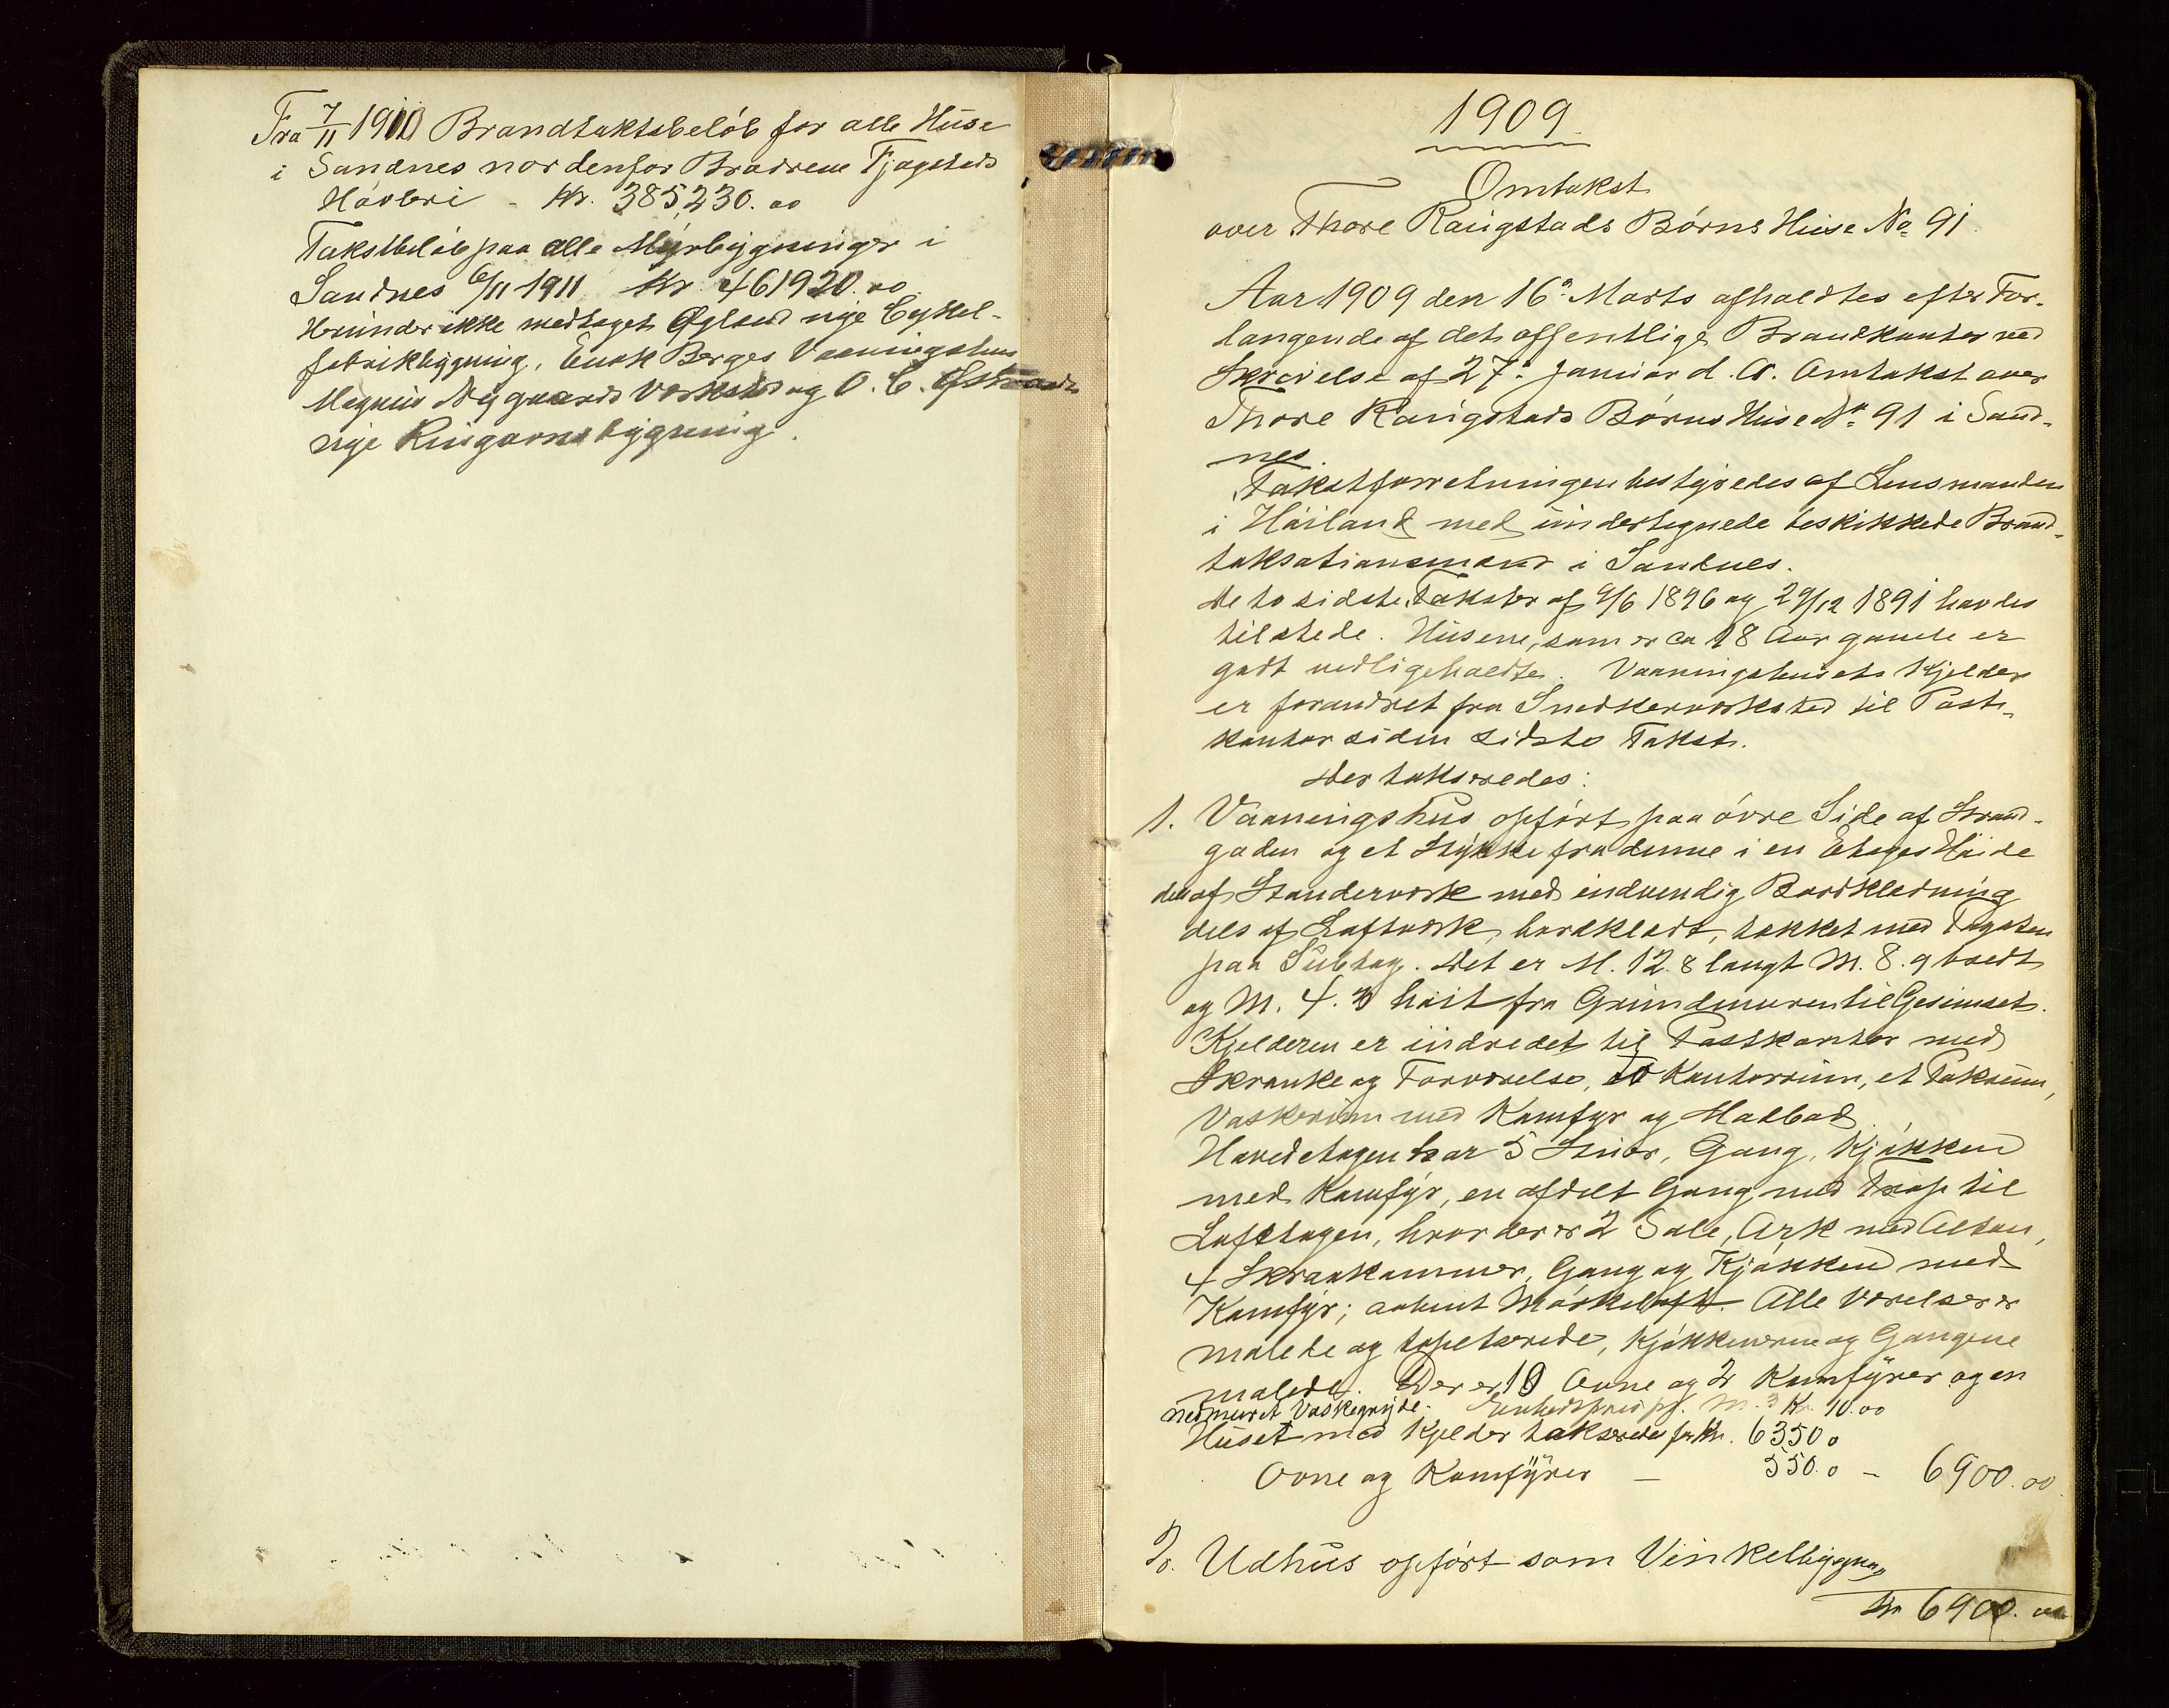 Fra 7/11 1910 Brandtakstbeløb for alle Huse
i Sandnes nordenfor Brødrene Fjogstads
Høvleri - Kr. 385,230.00
Takstbeløb paa alle Mýrbygninger i
Sandnes 6/11 1911 Kr. 461920.00
Herunder ikke medtaget Øglænd nye Cykel-
fabrikbygning, Enok Berges Vaaningshus
Magnus Nygaards Verksted og O. C.
nye Ringovnsbygning.
1909
Omtakst
over Thore Raugstads Børns Huse No 91.
Aar 1909 den 16de Marts afholdtes efter For-
langende af det offentlige Brandkontor ved
Skrivelse af 27de Januar d. A. Omtakst over
Thore Raugstads Børns Huse No 91 i Sand-
nes.
Takstforretningen bestyredes af Lensmanden
i Høiland med undertegnede beskikkede Brand-
taksationsmænd i Sandnes.
De to sidste Takster af 9/6 1896 og 29/12 1891 havdes
tilstede. Husene, som er ca 18 Aar gamle er
godt vedligeholdte. Vaaningshusets Kjelder
er forandret fra Snedkerverksted til Post-
kontor siden sidste Takst.
Der takseredes:
1. Vaaningshus opført paa øvre Side af Strand-
gaden og et Stykke fra denne i en Etages Høide
dels af Standerverk med indvendig Bordklædning
dels af Laftverk, bordklædt, tækket med Tagsten
paa Sutag. Det er M. 12.8 langt M. 8.9 bredt
og M. 4.3 høit fra Grundmuren til Gesimset.
Kjelderen er indredet til Postkontor med
Skranke og Forværelse, to Kontorrum, et Pakrum,
Vaskerum med Komfyr og Matbod.
Hovedetagen har 5 Stuer, Gang, Kjøkken
med Komfýr, en afdelt Gang med Trap til
Loftetagen, hvor der er 2 Sale, Ark med Altan,
4 Skraakammer, Gang og Kjøkken med
Komfýr; aabent Mørkeloft. Alle Værelser er
malede og tapeserede, Kjøkkenerne og Gangene
malede. Der er 10 Ovne og 2 Komfýrer og en
nedmuret Vaskegryde. Enhedspris pr. M.3 Kr. 10.00
Huset med Kjelder takseredes for Kr. 6350 0
Ovne og Komfýrer - 550.0 - 6900.00.
2. Udhus opført som Vinkelbygning
Kr 6900.00